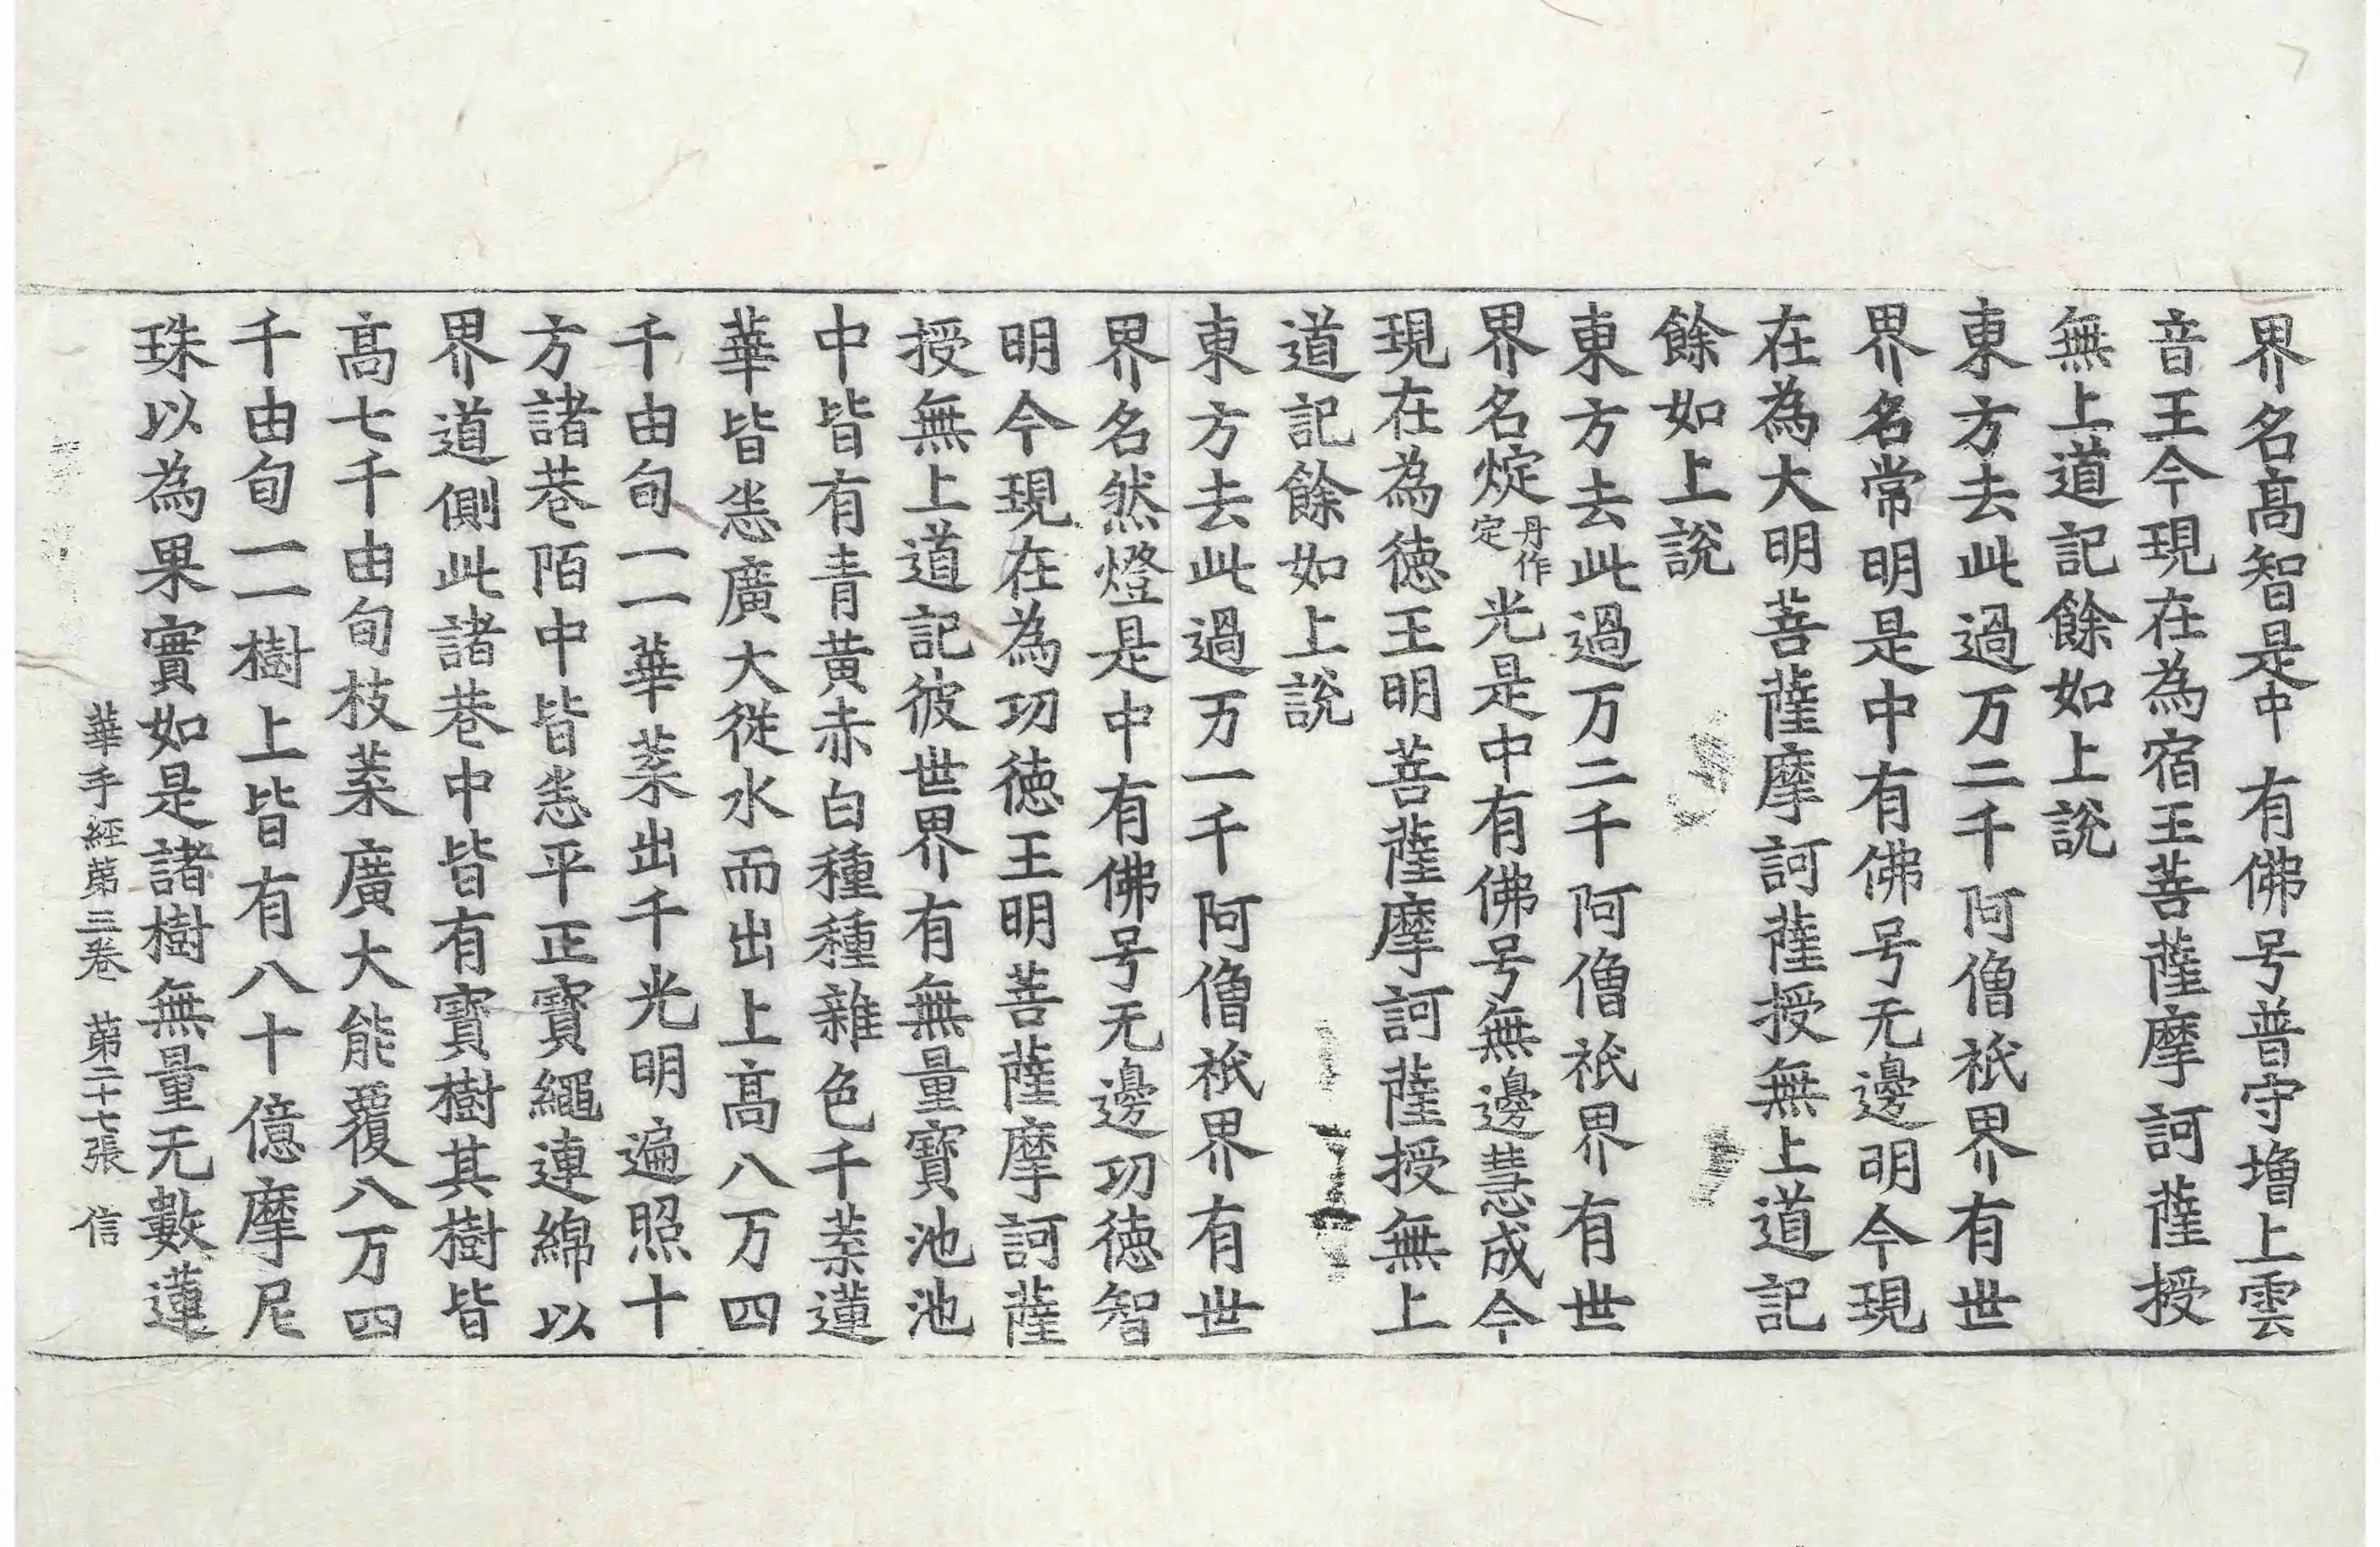 界名髙智是中有佛号普守增上雲
音王今現在為宿王菩薩摩訶薩授
無上道記餘如上說
東方去此過万二千阿僧祇界有世
界名常明是中有佛号无邊明今現
在為大明菩薩摩訶薩授無上道記
餘如上說
東方去此過万二千阿僧祇界有世
界名㝎丹作定光是中有佛号無邊慧成今
現在為徳王明菩薩摩訶薩授無上
道記餘如上說
東方去此過万一千阿僧祇界有世
界名然燈是中有佛号无邊功徳智
明今現在為功徳王明菩薩摩訶薩
授無上道記彼世界有無量寶池池
中皆有青黄赤白種種雜色千葉蓮
華皆悉廣大従水而出上髙八万四
千由旬一一華葉出千光明遍照十
方諸巷陌中皆悉平正寶繩連綿以
界道側此諸巷中皆有寶樹其樹皆
髙七千由旬枝葉廣大能覆八万四
千由旬一一樹上皆有八十億摩尼
珠以為果實如是諸樹無量无數蓮
華手經第三卷 第二十七張 信